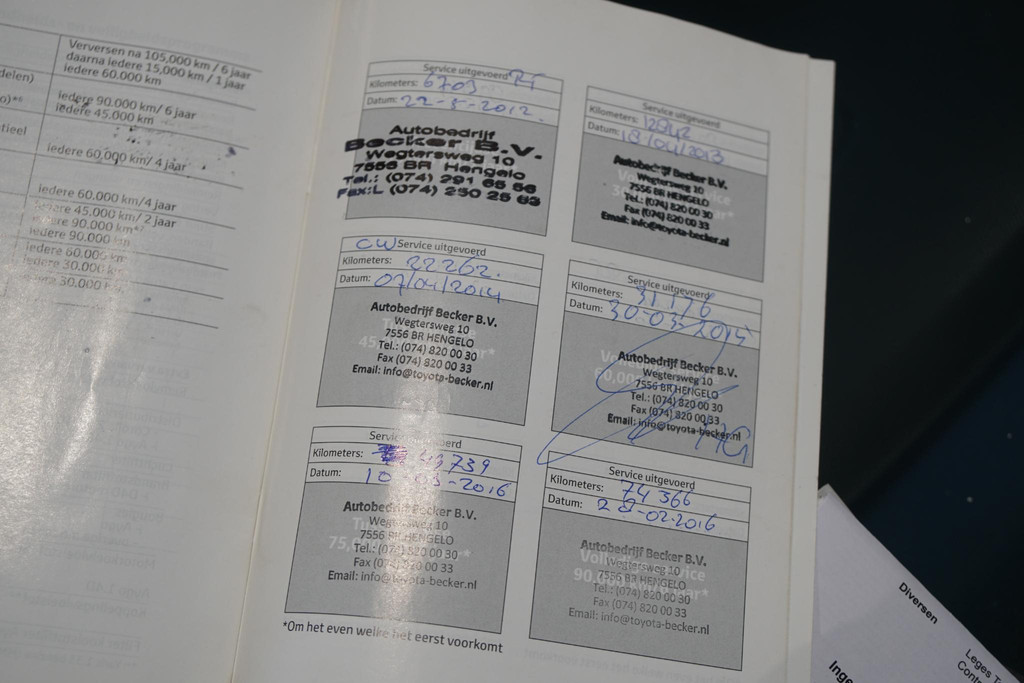 Verversen na 105,000 km / 6 jaar
daarna iedere 15,000 km / 1 jaar
iedere 60.000 km
delen)
iedere 90.000 km/ 6 jaar
iedere 45.000 km
iedere 60,000 km/ 4 jaar
iedere 60.000 km/4 jaar
iedere 45.000 km/ 2 jaar
iedere 90.000 km*⁷
iedere 90.000 km
iedere 60.000 km
iedere 30.000 km
iedere 30.000 km
Service uitgevoerd
Kilometers: 6703
Datum: 22-5-2012.
Autobedrijf
Becker B.V.
Wegtersweg 10
7556 BR Hengelo
Tel.: (074) 291 65 56
Fax:L (074) 250 25 63
Service uitgevoerd
Kilometers: 12942
Datum: 18/04/2013
Autobedrijf Becker B.V.
Wegtersweg 10
7556 BR HENGELO
Tel.: (074) 820 00 30
Fax (074) 820 00 33
Email: info@toyota-becker.nl
CW Service uitgevoerd
Kilometers: 22262.
Datum: 07/04/2014
Autobedrijf Becker B.V.
Wegtersweg 10
7556 BR HENGELO
Tel.: (074) 820 00 30
Fax (074) 820 00 33
Email: info@toyota-becker.nl
Service uitgevoerd
Kilometers: 31176
Datum: 30-03-2015
Autobedrijf Becker B.V.
Wegtersweg 10
7556 BR HENGELO
Tel.: (074) 820 00 30
Fax (074) 820 00 33
Email: info@toyota-becker.nl
Service uitgevoerd
Kilometers: 43739
Datum: 10-03-2016
Autobedrijf Becker B.V.
Wegtersweg 10
7556 BR HENGELO
Tel.: (074) 820 00 30
Fax (074) 820 00 33
Email: info@toyota-becker.nl
Service uitgevoerd
Kilometers: 74 366
Datum: 28-02-2016
Autobedrijf Becker B.V.
Wegtersweg 10
7556 BR HENGELO
Tel.: (074) 820 00 30
Fax (074) 820 00 33
Email: info@toyota-becker.nl
*Om het even welke het eerst voorkomt
Diversen
Leges